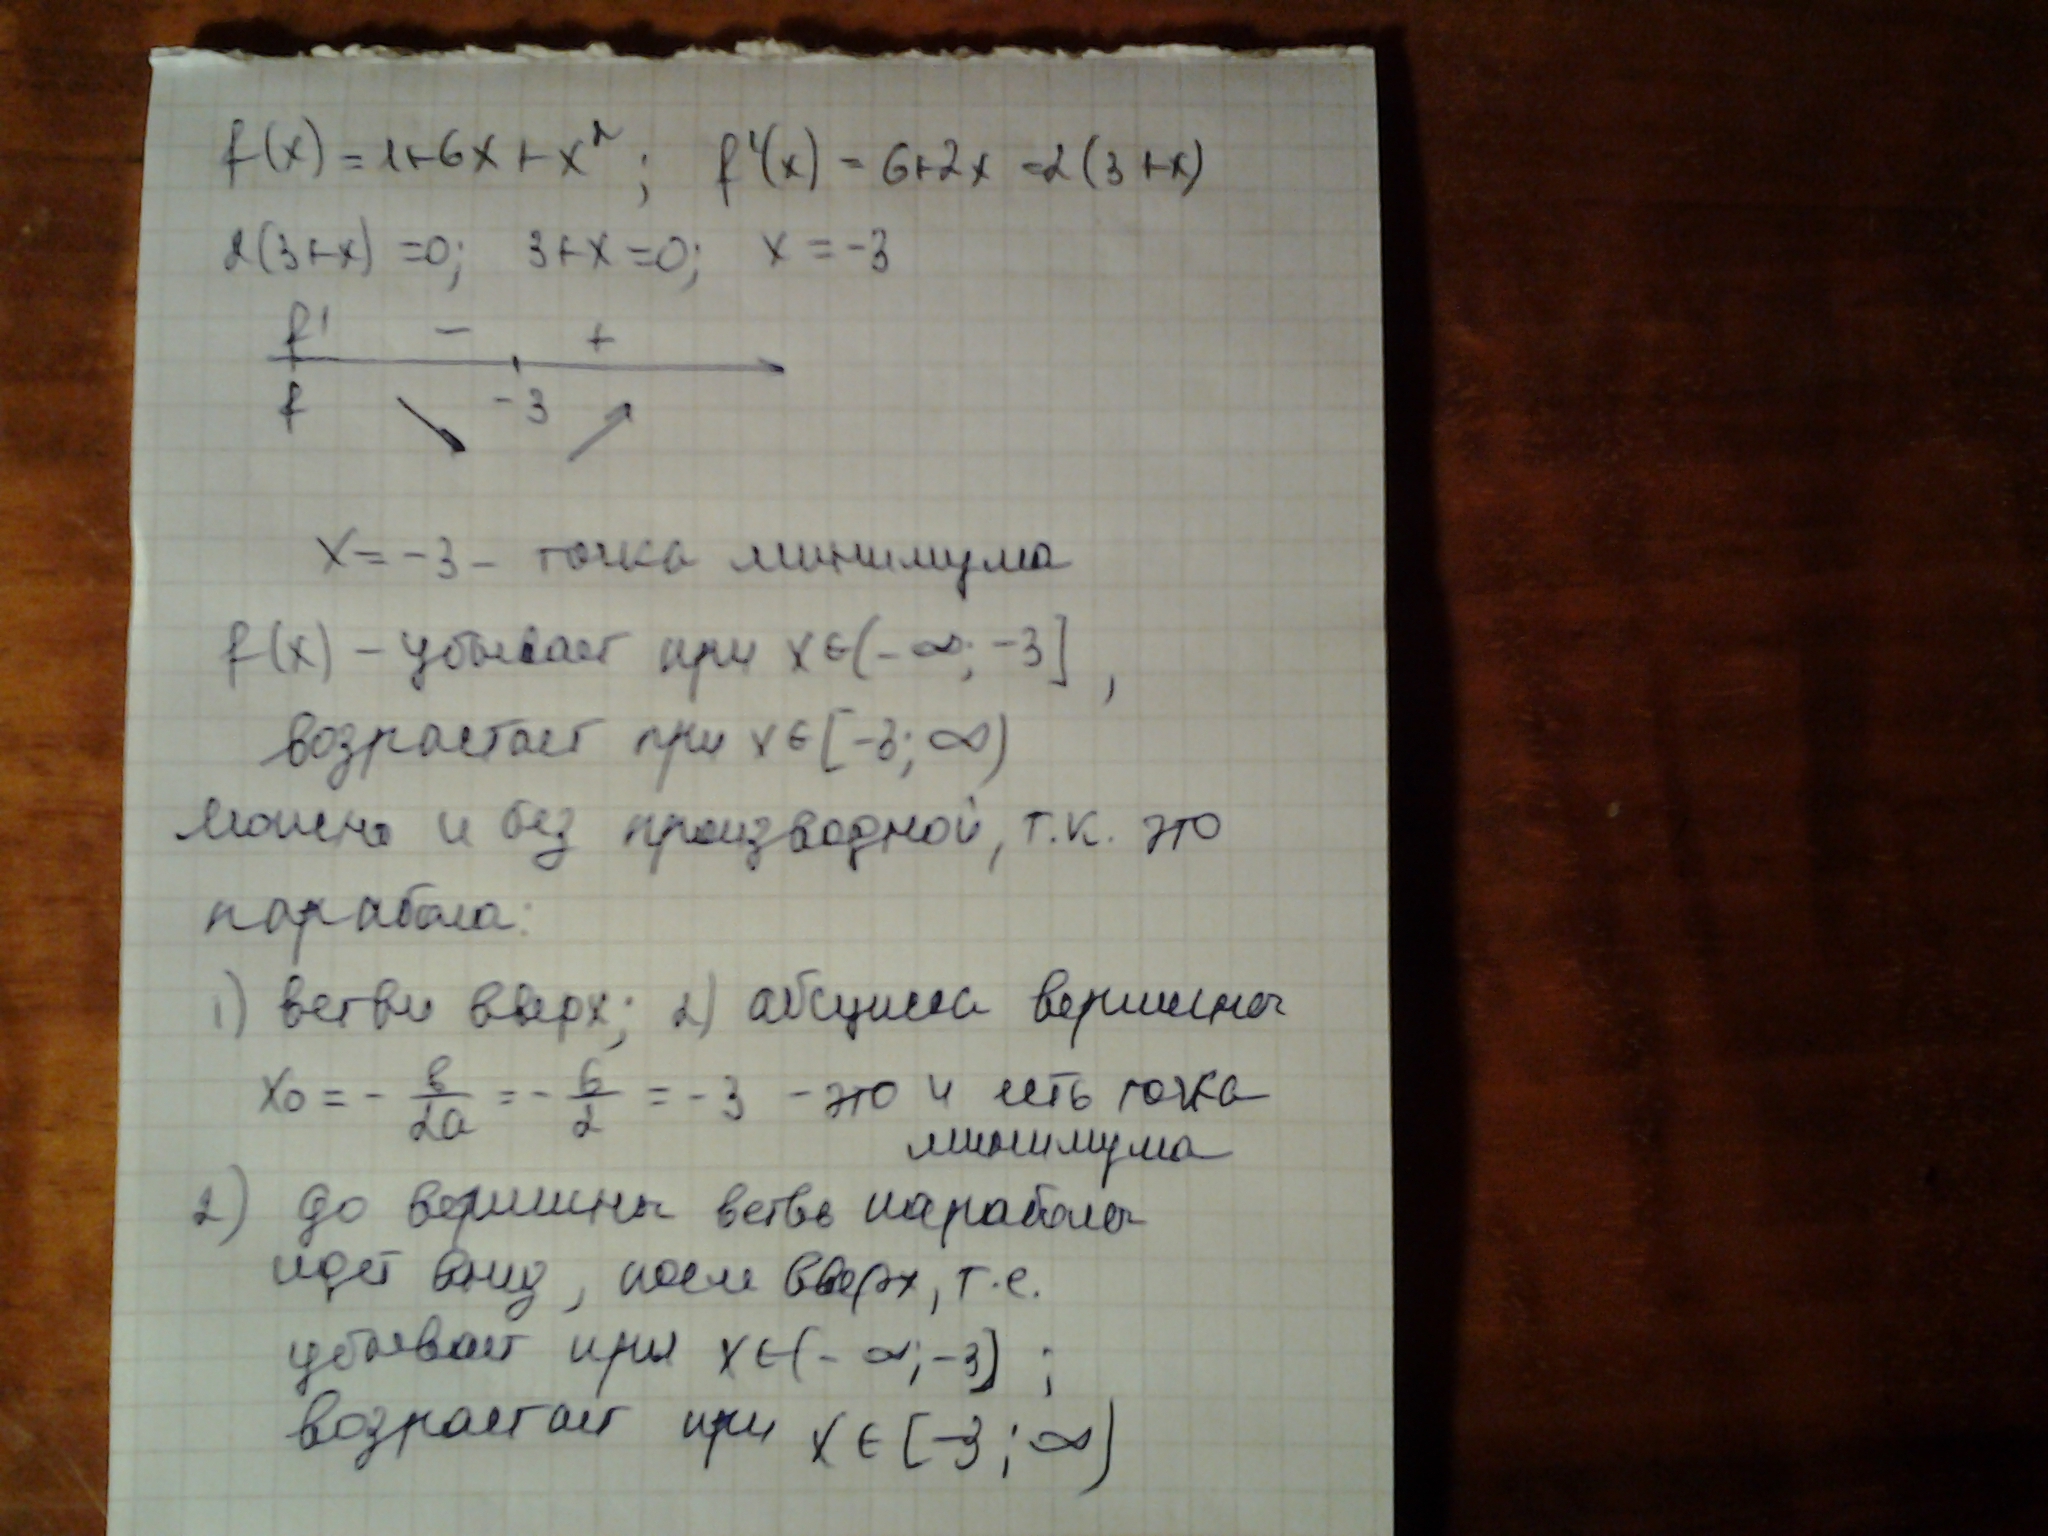 f(x) = 1+6x+x²; f'(x) = 6+2x = 2(3+x)
2(3+x) = 0; 3+x = 0; x = -3
f' - +
f -3
x = -3 - точка минимума
f(x) - убывает при x∈(-∞; -3],
возрастает при x∈[-3; ∞)
можно и без производной, т.к. это
парабола:
1) ветви вверх; 2) абсцисса вершины
x₀ = - в/2a = - 6/2 = -3 - это и есть точка
минимума
2) до вершины ветвь параболы
идет вниз, после вверх, т.е.
убывает при x∈(-∞; -3];
возрастает при x∈[-3; ∞)